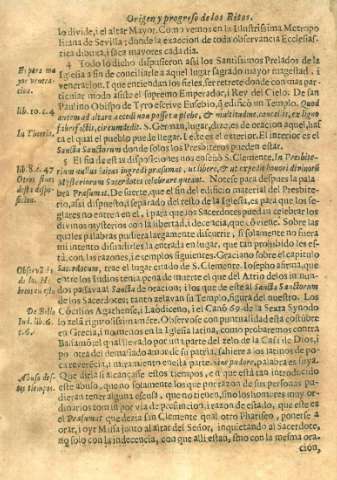 Origen y progreso de los Ritos.
lo divide, i el altar Mayor. Como vemos en la Illustrissima Metropo
litana de Sevilla; donde la exaccion de toda observancia Ecclesiás
tica dibuxa, i saca mayores cada dia.
4 Todo lo dicho dispusieron assi los Santissimos Prelados de la
El para ma
yor venera-
cion.
Iglesia a fin de conciliarle a aquel lugar sagrado mayor magestad, i
veneracion. I que entiendan los fieles, se retrete donde con mas par-
ticular modo assiste el supremo Emperador, i Rey del Cielo. De san
lib. 10. c. 4
Paulino Obispo de Tyro escrive Eusebio, q̃ edificò un Templo. Quod
autem ad altare accedi non posset a plebe, & multitudine, cancellis, ex ligno
fabrefactis, circumdedit. S. German, lugar, dize, es de oracion aquel, has
In Theoria.
ta el qual el pueblo pue de llegar. I este es el exterior. El interior es el
Sancta Sanctorum donde solos los Presbiteros pueden estar.
5 El fin de estas disposiciones nos enseñò S. Clemente, In Presbite-
lib. 8. c. 47
rium nullus laicus ingredi præsumat, ut libere, & ut expedit honori divinorũ
Otros fines
Mysteriorum Sacerdotes celebrare queant.
desta dispo-
sicion.
bra Præsumat. De suerte, que el fin del edificio material del Presbite-
rio, assi dispuesto, i separado del resto de la Iglesia, es para que los se-
glares no entren en el, i para que los Sacerdotes puedan celebrar los
divinos mysterios con la libertad, i decencia, que cõviene. Sobre las
quales palabras pudiera largamente discurrir, si solamente no fuera
mi intento dissuadirles la entrada en lugar, que tan prohibido les es-
tà, con las razones, i exemplos siguientes. Graciano sobre el capitulo
Observãcia
de los He-
breos en esto
Sacerdotum, trae el lugar citado de S. Clemente. Iosepho afirma, que
entre los Iudios tenia pena de muerte el que del Atrio de los munda
nos passava al Sancta de oracion; i los que de este al Sancta Sanctorum
de los Sacerdotes; tanto zelavan su Templo, figura del nuestro. Los
De Bello
Iud. lib. 6.
c. 6.
Cõcilios Agathense, Laodiceno, i el Canõ 69. de la Sexta Synodo
lo zelã rigurosissimamente. Observòse con puntualidad esta costũbre
en Grecia, i no menos en la Iglesia latina, como probaremos contra
Balsamò, el qual llevado por una parte del zelo de la Casa de Dios, i
por otra del demasiado amor de su patria, sahiere a los latinos de po-
ca reverecia, i mira miento en esto. Que pudor, palabra es suya.
Que diria si alcançasse estos tiempos, en que està tan introducido
Abuso des-
tos tiempos.
este abuso, que no solamente los que por razon de sus personas pu-
dieran tener alguna escusa, que no tienen, sino los hombres muy or-
dinarios tomã por via de presuncion, i razon de estado, que este es
el Præsumat que dezia san Clemente qual otro Phariseo, ponerse a
orar, i oyr Missa junto al altar del Señor, inquietando al Sacerdote,
no solo con la indecencia, con que alli estan, sino con la mesma ora-
cion,